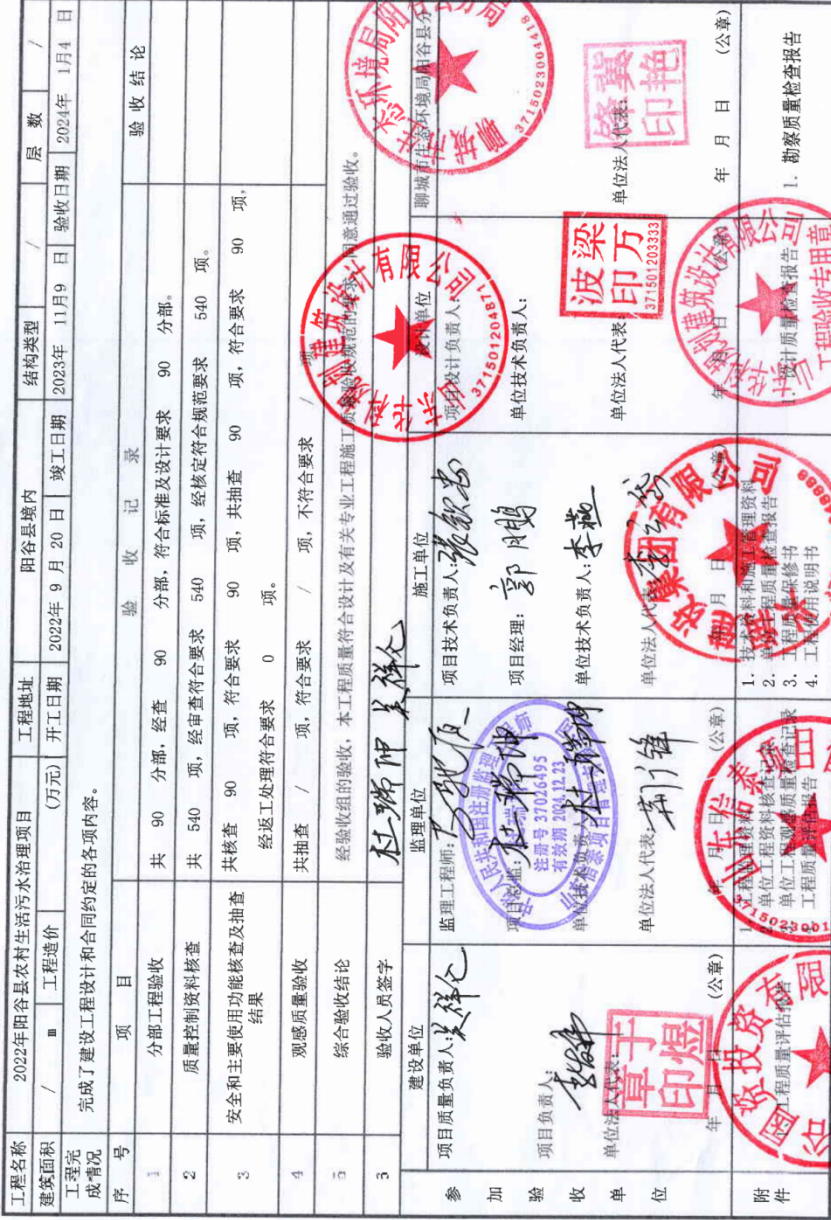 工程名称 2022年阳谷县农村生活污水治理项目 工程地址 阳谷县境内 结构类型 / 层 数 /
建筑面积 / m 工程造价 (万元) 开工日期 2022年 9 月 20 日 竣工日期 2023年 11月9 日 验收日期 2024年 1月4 日
工程完成情况 完成了建设工程设计和合同约定的各项内容。
序 号 项 目 验 收 记 录 验 收 结 论
1 分部工程验收 共 90 分部，经查 90 分部，符合标准及设计要求 90 分部。
2 质量控制资料核查 共 540 项，经审查符合要求 540 项，经核定符合规范要求 540 项。
3 安全和主要使用功能核查及抽查结果 共核查 90 项，符合要求 90 项，共抽查 90 项，符合要求 90 项，
经返工处理符合要求 0 项。
4 观感质量验收 共抽查 / 项，符合要求 / 项，不符合要求 / 项。
5 综合验收结论 经验收组的验收，本工程质量符合设计及有关专业工程施工质量验收规范的要求，同意通过验收。
验收人员签字 杜瑞坤
参 加 验 收 单 位
建设单位
项目质量负责人:
项目负责人:
单位法人代表:
章于
印煜
年 月 日 (公章)
监理单位
监理工程师:
项目总监: 杜瑞坤
单位技术负责人: 杜瑞坤
单位法人代表:
年 月 日 (公章)
中华人民共和国注册监理工程师
注册号 37026495
有效期 2024.12.23
施工单位
项目技术负责人:
项目经理: 郭鹏
单位技术负责人: 李燕
单位法人代表:
年 月 日 (公章)
建设集团有限公司
设计单位
项目设计负责人:
单位技术负责人:
单位法人代表:
波梁
印万
371501203333
年 月 日 (公章)
建筑设计有限公司
371501204871
建筑设计有限公司
工程验收专用章
聊城市生态环境局阳谷县分
单位法人代表:
冀
印艳
年 月 日 (公章)
聊城市生态环境局阳谷县分局
3715023004418
附 件
工程质量评估报告
投资有限
1. 工程监理资料
单位工程资料核查记录
单位工程观感质量检查记录
工程质量评估报告
山东信泰项目
1. 技术资料和施工管理资料
2. 单位工程质量检查报告
3. 工程质量保修书
4. 工程使用说明书
1. 设计质量检查报告
1. 勘察质量检查报告